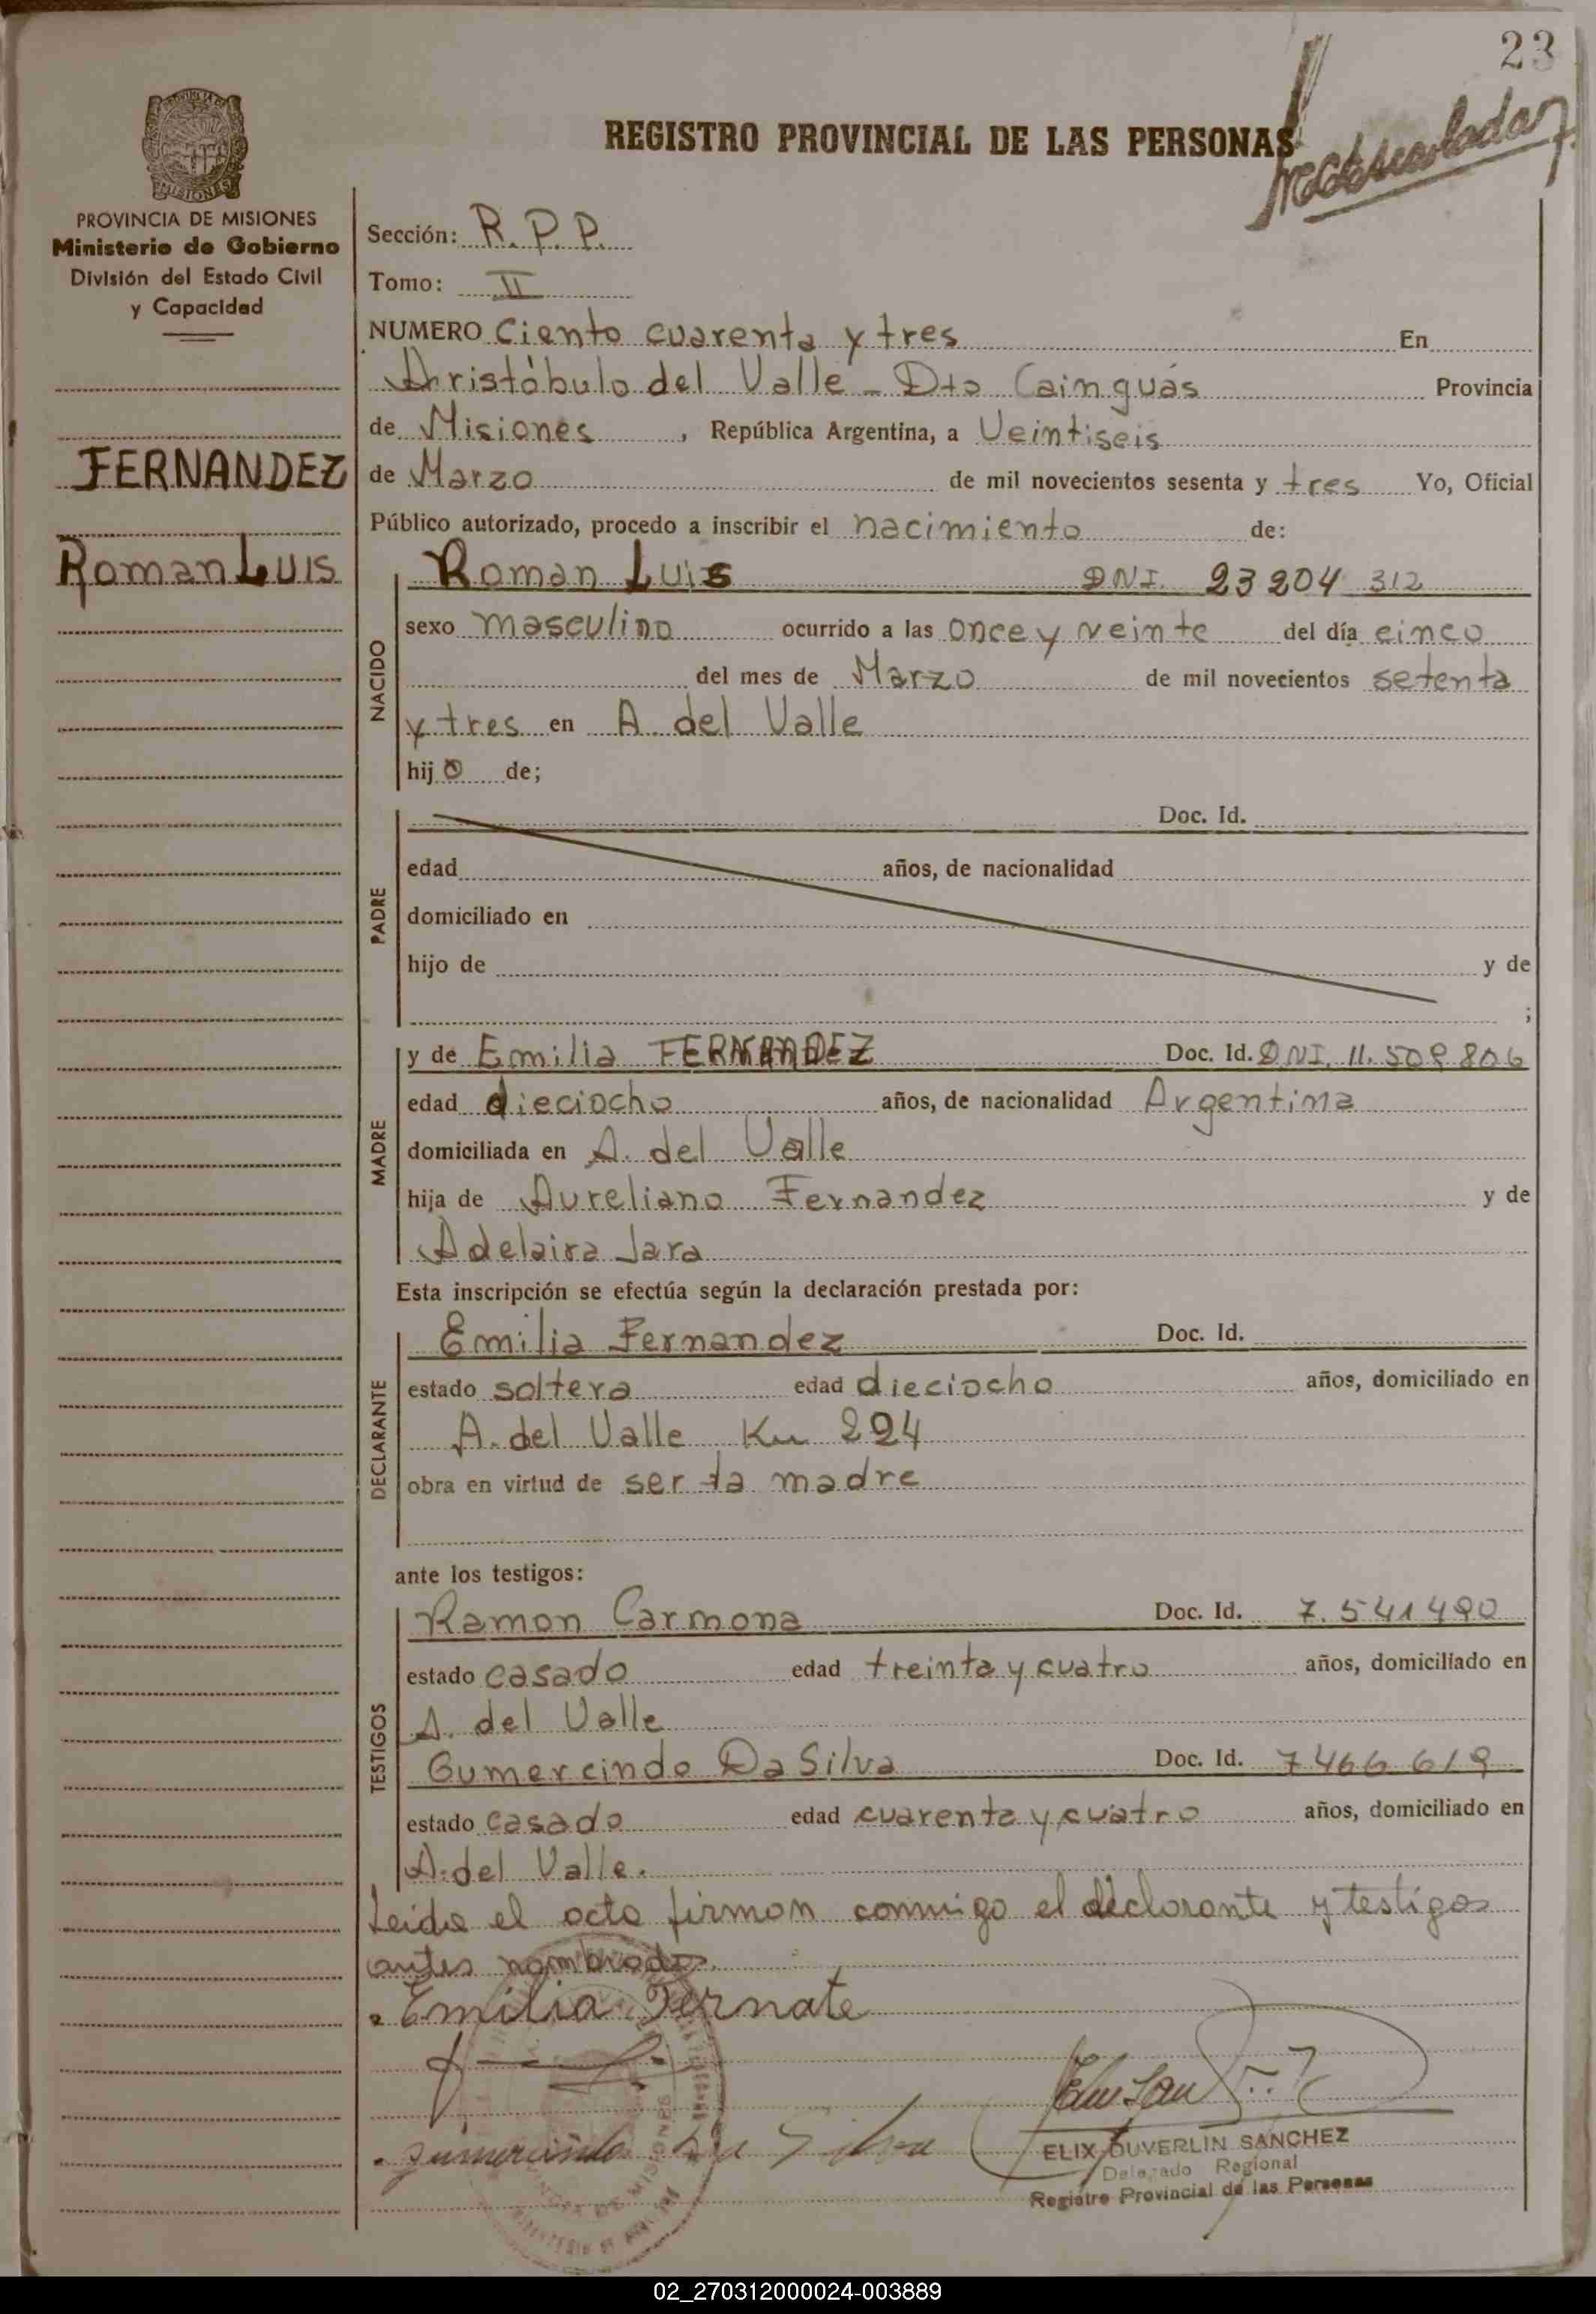 23
REGISTRO PROVINCIAL DE LAS PERSONAS
PROVINCIA DE MISIONES
Ministerio de Gobierno
División del Estado Civil
y Capacidad
FERNANDEZ
Roman Luis
Sección: R.P.P.
Tomo: II
NUMERO Ciento cuarenta y tres En
Aristóbulo del Valle - Dto Cainguás Provincia
de Misiones, República Argentina, a Veintiseis
de Marzo de mil novecientos sesenta y tres Yo, Oficial
Público autorizado, procedo a inscribir el nacimiento de:
NACIDO
Roman Luis DNI. 23 204 312
sexo masculino ocurrido a las once y veinte del día cinco
del mes de Marzo de mil novecientos setenta
y tres en A. del Valle
hijo de;
PADRE
Doc. Id.
edad años, de nacionalidad
domiciliado en
hijo de y de
;
MADRE
y de Emilia FERNANDEZ Doc. Id. DNI. 11.509 806
edad dieciocho años, de nacionalidad Argentina
domiciliada en A. del Valle
hija de Aureliano Fernandez y de
Adelaira Jara
Esta inscripción se efectúa según la declaración prestada por:
DECLARANTE
Emilia Fernandez Doc. Id.
estado soltera edad dieciocho años, domiciliado en
A. del Valle Km 224
obra en virtud de ser la madre
ante los testigos:
TESTIGOS
Ramon Carmona Doc. Id. 7.541490
estado casado edad treinta y cuatro años, domiciliado en
A. del Valle
Gumercindo Da Silva Doc. Id. 7466 619
estado casado edad cuarenta y cuatro años, domiciliado en
A. del Valle.
Leida el acta firman conmigo el declarante y testigos
antes nombrados.
Emilia Fernate
gumercindo Da Silva
ELIX DUVERLIN SANCHEZ
Delegado Regional
Registro Provincial de las Personas
02_270312000024-003889